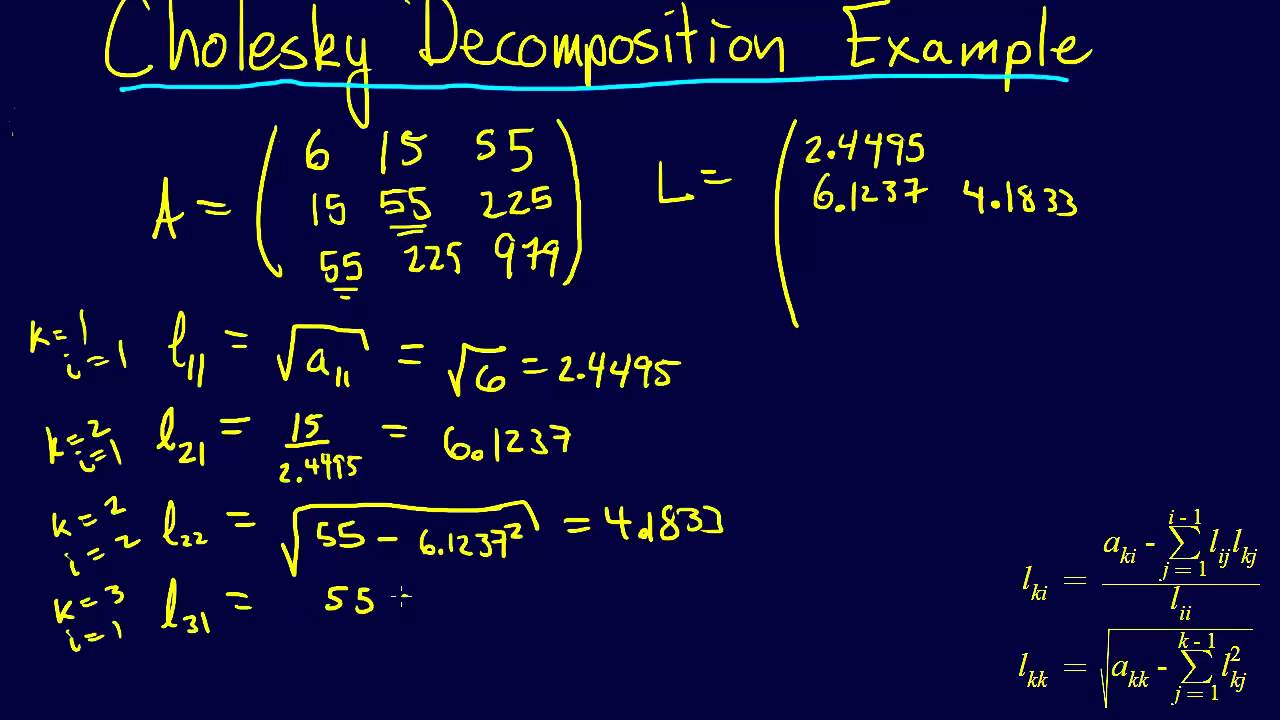 Cholesky Decomposition Example
A = ( 6 15 55
15 55 225
55 225 979 )
L = ( 2.4495
6.1237 4.1833
k=1 i=1 l₁₁ = √a₁₁ = √6 = 2.4495
k=2 i=1 l₂₁ = 15/2.4495 = 6.1237
k=2 i=2 l₂₂ = √(55 - 6.1237²) = 4.1833
k=3 i=1 l₃₁ = 55
l_ki = (a_ki - ∑_{j=1}^{i-1} l_ij l_kj) / l_ii
l_kk = √(a_kk - ∑_{j=1}^{k-1} l²_kj)